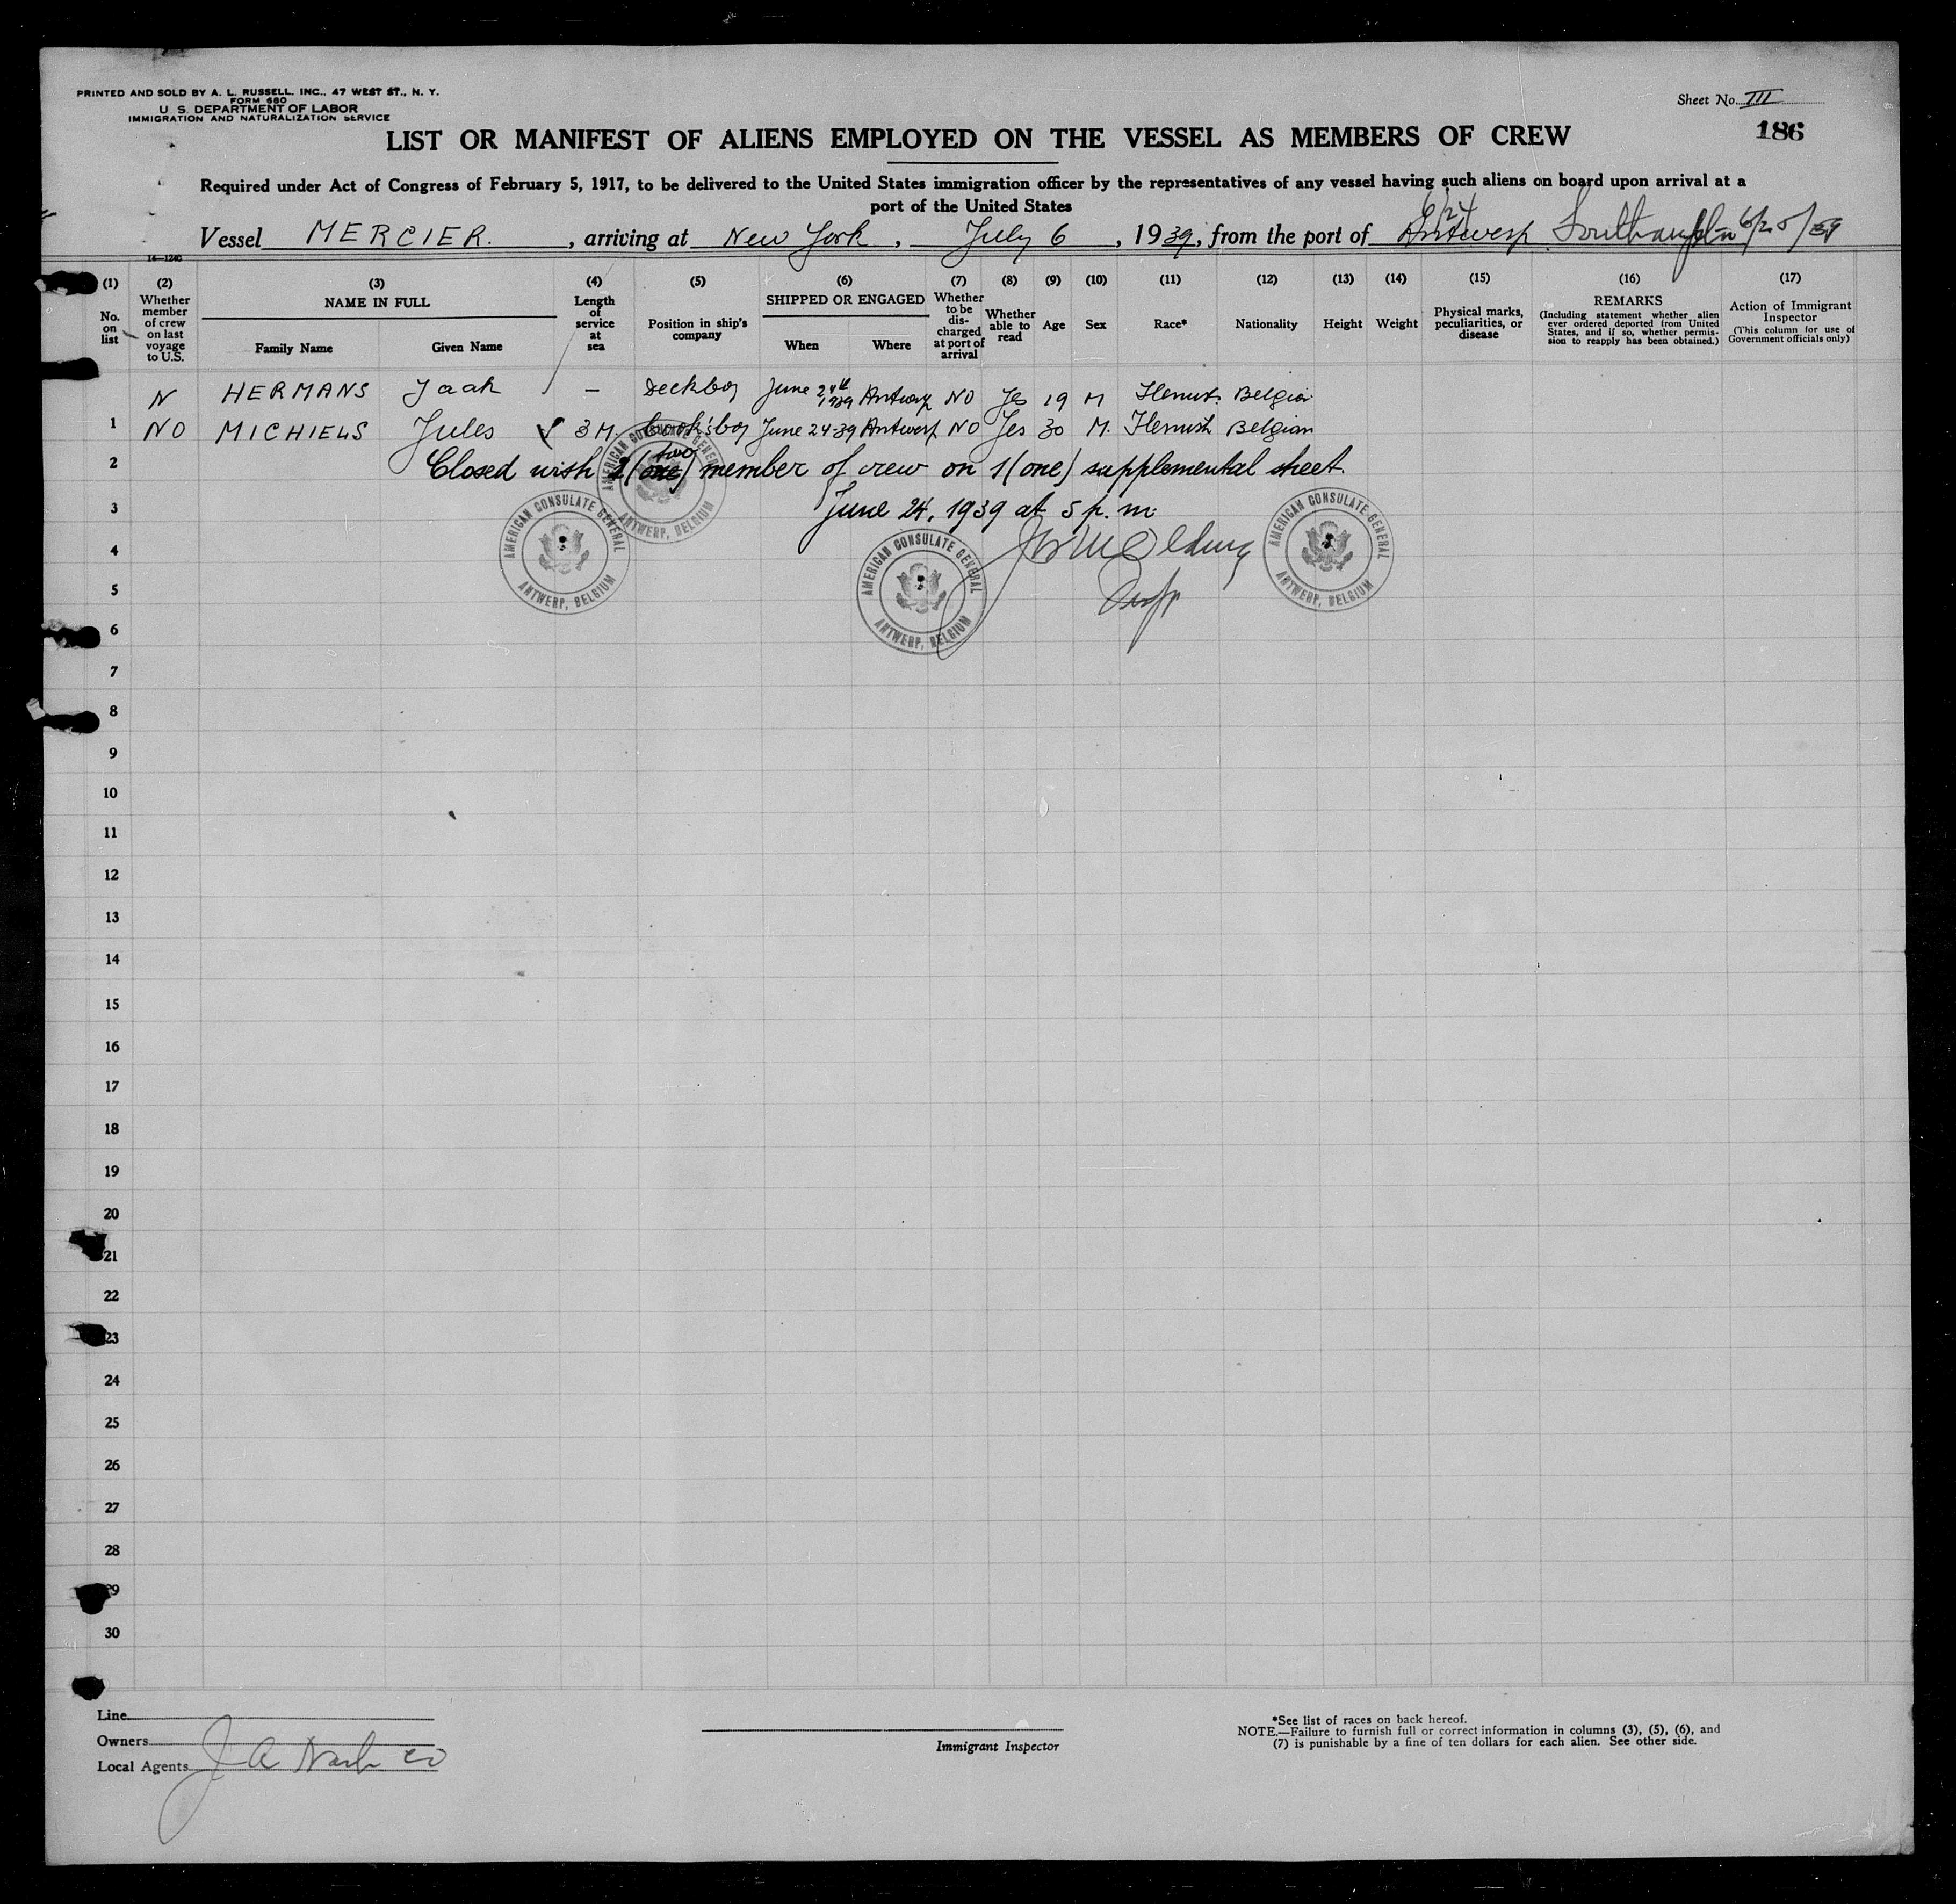 PRINTED AND SOLD BY A. L. RUSSELL. INC., 47 WEST ST., N. Y.
FORM 680
U. S. DEPARTMENT OF LABOR
IMMIGRATION AND NATURALIZATION SERVICE
Sheet No. III
186
LIST OR MANIFEST OF ALIENS EMPLOYED ON THE VESSEL AS MEMBERS OF CREW
Required under Act of Congress of February 5, 1917, to be delivered to the United States immigration officer by the representatives of any vessel having such aliens on board upon arrival at a
port of the United States
6/24
Vessel MERCIER. , arriving at New York , July 6 , 1939, from the port of Antwerp Southampton 6/25/39
14—1240
(1) No. on list
(2) Whether member of crew on last voyage to U.S.
(3) NAME IN FULL
Family Name Given Name
(4) Length of service at sea
(5) Position in ship's company
(6) SHIPPED OR ENGAGED
When Where
(7) Whether to be discharged at port of arrival
(8) Whether able to read
(9) Age
(10) Sex
(11) Race*
(12) Nationality
(13) Height
(14) Weight
(15) Physical marks, peculiarities, or disease
(16) REMARKS
(Including statement whether alien ever ordered deported from United States, and if so, whether permission to reapply has been obtained.)
(17) Action of Immigrant Inspector
(This column for use of Government officials only)
N HERMANS Jaak – Deckboy June 24th 1939 Antwerp NO Yes 19 M Flemish Belgian
1 NO MICHIELS Jules 3 M. Cook's boy June 24-39 Antwerp NO Yes 30 M. Flemish Belgian
two
2 Closed with 2 (one) member of crew on 1 (one) supplemental sheet.
3 June 24, 1939 at 5 p. m.
AMERICAN CONSULATE GENERAL
ANTWERP, BELGIUM
AMERICAN CONSULATE GENERAL
ANTWERP, BELGIUM
AMERICAN CONSULATE GENERAL
ANTWERP, BELGIUM
AMERICAN CONSULATE GENERAL
ANTWERP, BELGIUM
4
5
6
7
8
9
10
11
12
13
14
15
16
17
18
19
20
21
22
23
24
25
26
27
28
29
30
Line
Owners
Local Agents J A Nash Co
Immigrant Inspector
*See list of races on back hereof.
NOTE.—Failure to furnish full or correct information in columns (3), (5), (6), and
(7) is punishable by a fine of ten dollars for each alien. See other side.